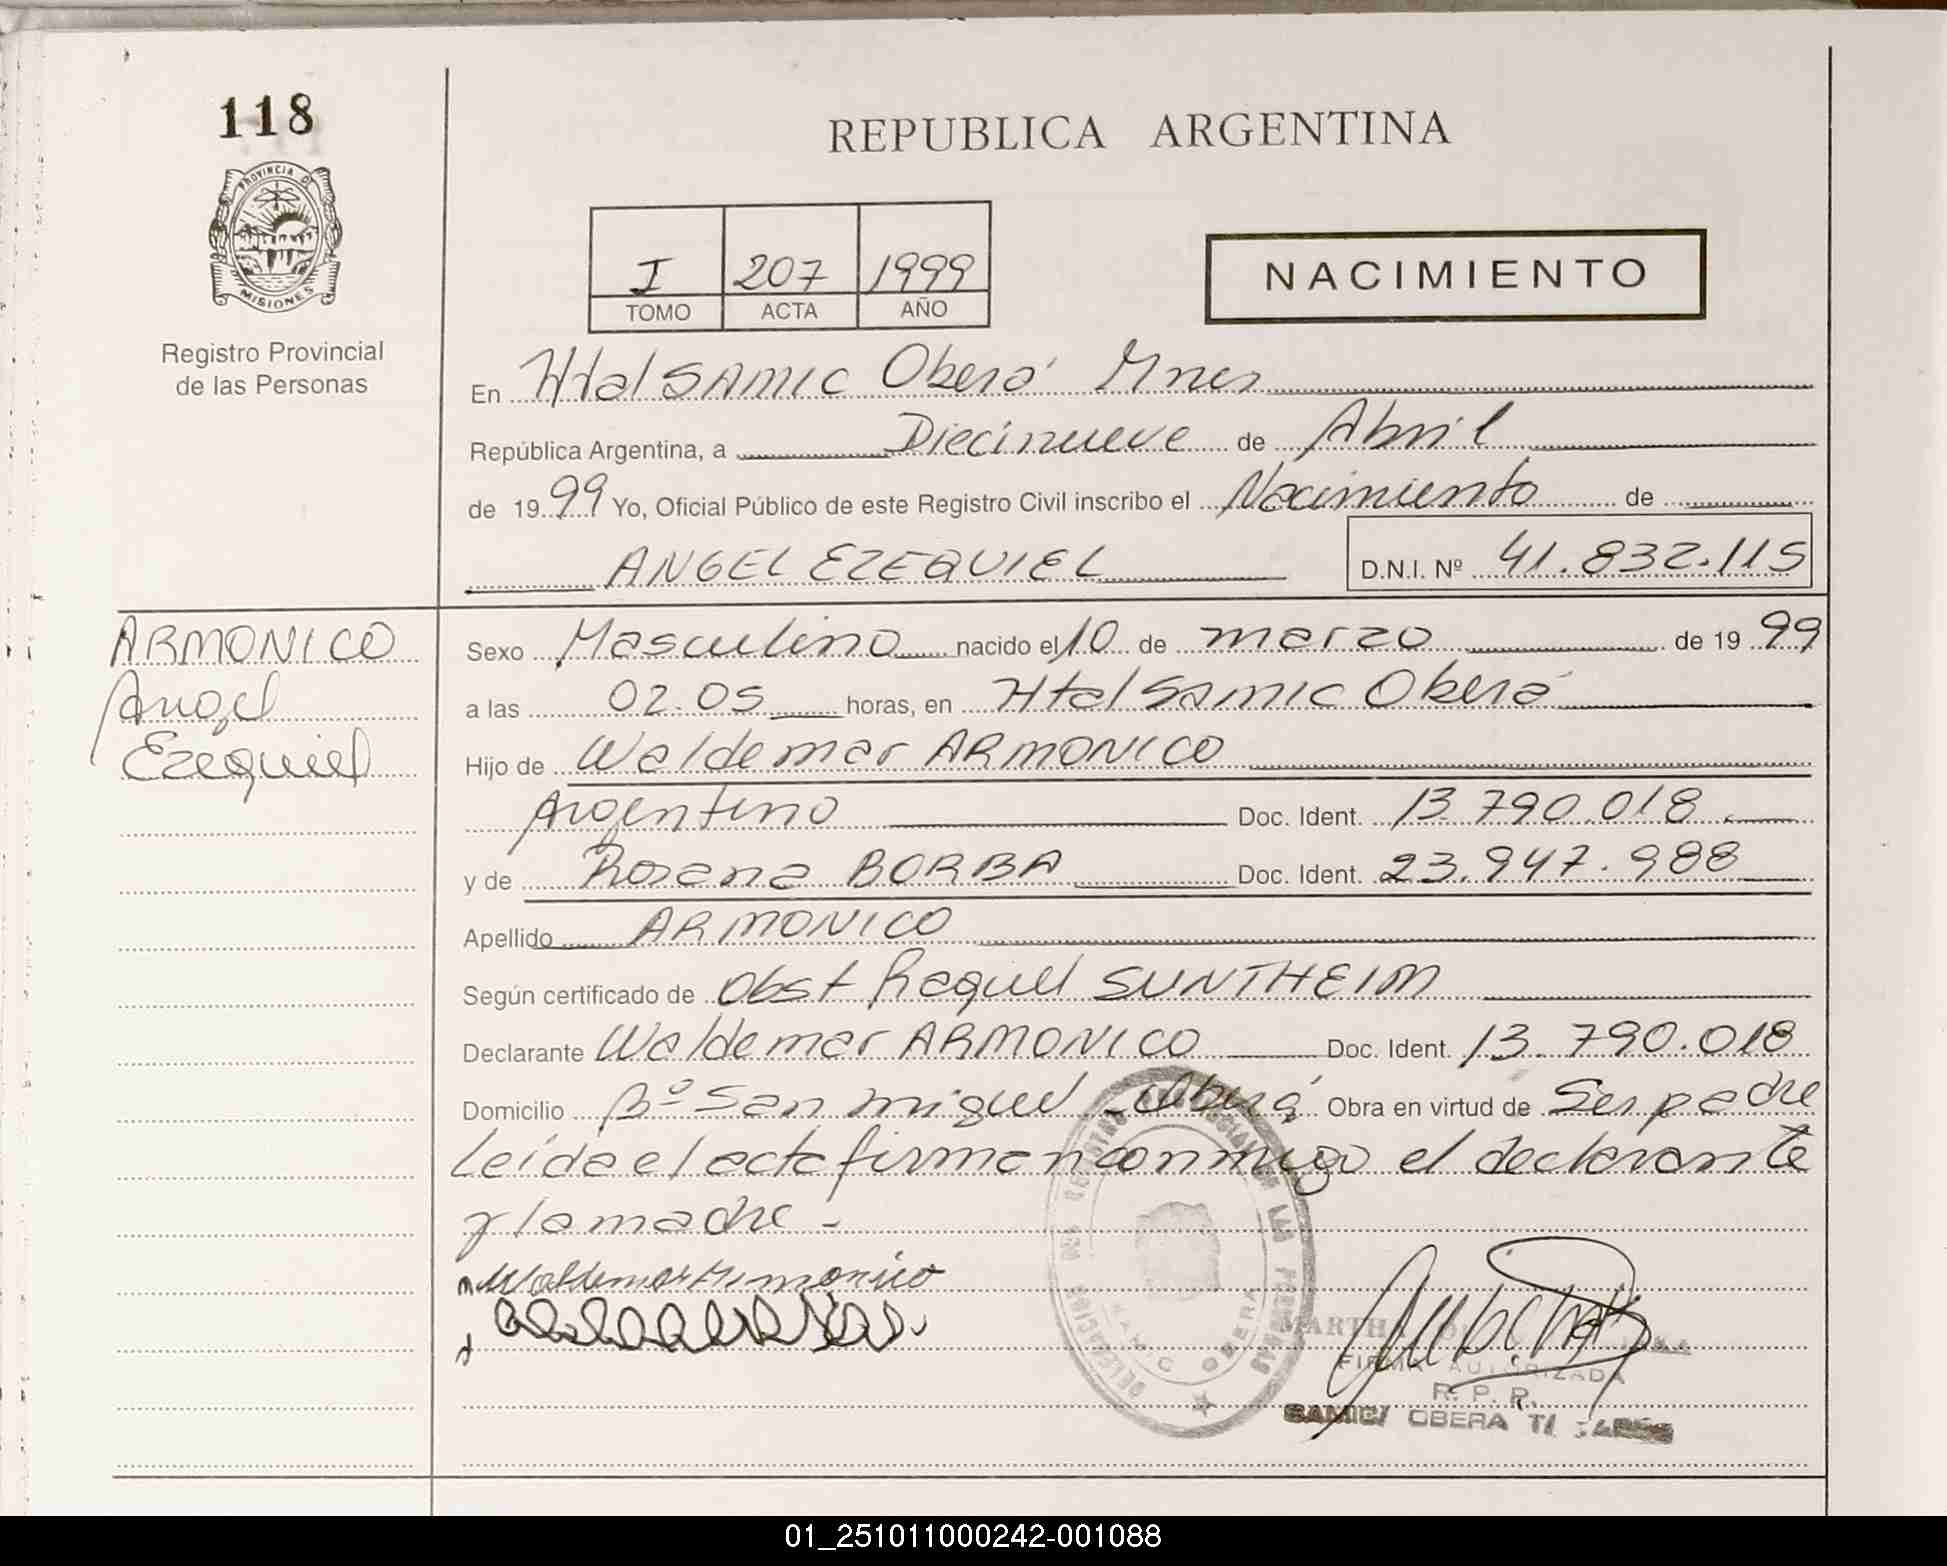 118
REPUBLICA ARGENTINA
PROVINCIA D
MISIONES
Registro Provincial
de las Personas
I 207 1999
TOMO ACTA AÑO
NACIMIENTO
En Htal SAMIC Oberá Mnes
República Argentina, a Diecinueve de Abril
de 1999 Yo, Oficial Público de este Registro Civil inscribo el Nacimiento de
ANGEL EZEQUIEL D.N.I. Nº 41.832.115
ARMONICO
Angel
Ezequiel
Sexo Masculino nacido el 10 de marzo de 1999
a las 02.05 horas, en Htal Samic Oberá
Hijo de Waldemar ARMONICO
Argentino Doc. Ident. 13.790.018
y de Rosana BORBA Doc. Ident. 23.947.988
Apellido ARMONICO
Según certificado de Obst Raquel SUNTHEIM
Declarante Waldemar ARMONICO Doc. Ident. 13.790.018
Domicilio Bº San miguel - Oberá Obra en virtud de Ser padre
Leída el acta firman conmigo el declarante
y la madre -
Waldemar Armonico
MARTHA
FIRMA AUTORIZADA
R. P. P.
SAMIC OBERA
01_251011000242-001088